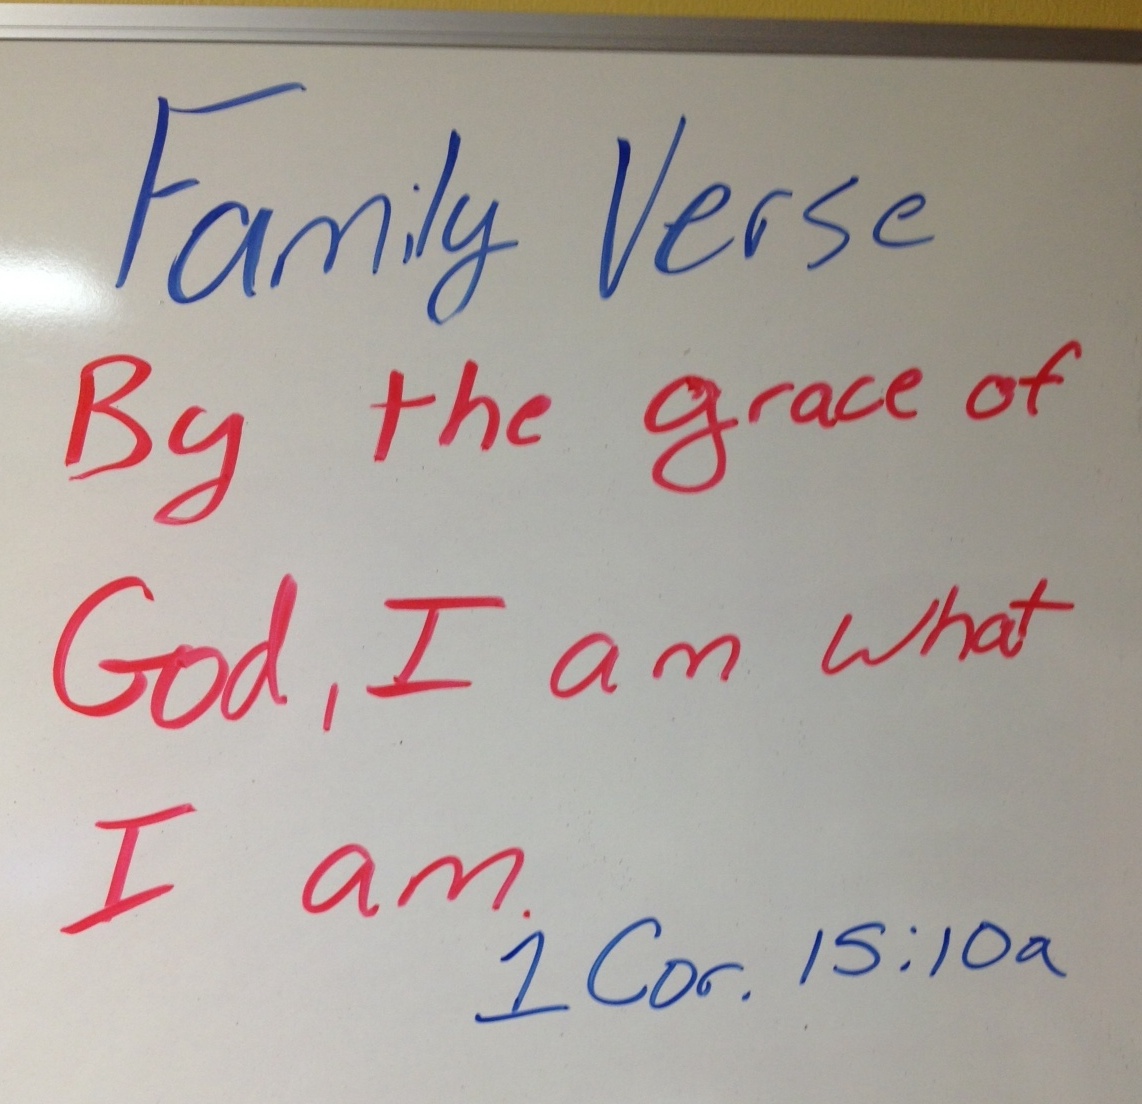 Family Verse
By the grace of
God, I am what
I am.
1 Cor. 15:10a